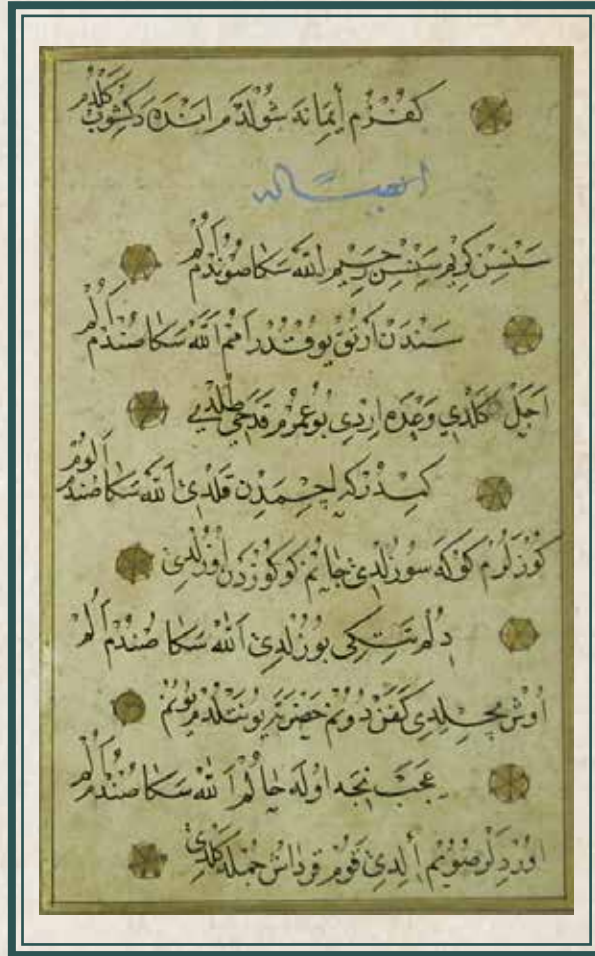 كفرم ايمانه شولدم اندن دكشوب كلدم
سنسن كريم سنسن رحيم الله سكا صوندم الم
سندن ارتق يوقدر امم الله سكا صندم الم
اجل كلدي وعده اردي بو عمرم قدحي طلدي
كمدر كه اچمدن قلدي الله سكا صندم الوم
كوزلرم كوكه سوزلدي جانم كوكوزدن اوزلدي
دلم تتكى بوزلدي الله سكا صندم الم
اوش بچلدي كفن دونم حضرته يونتلدم يونم
عجب نجه اوله حالم الله سكا صندم الم
اوردلر صويم الدي قوم قرداش جمله كلدي